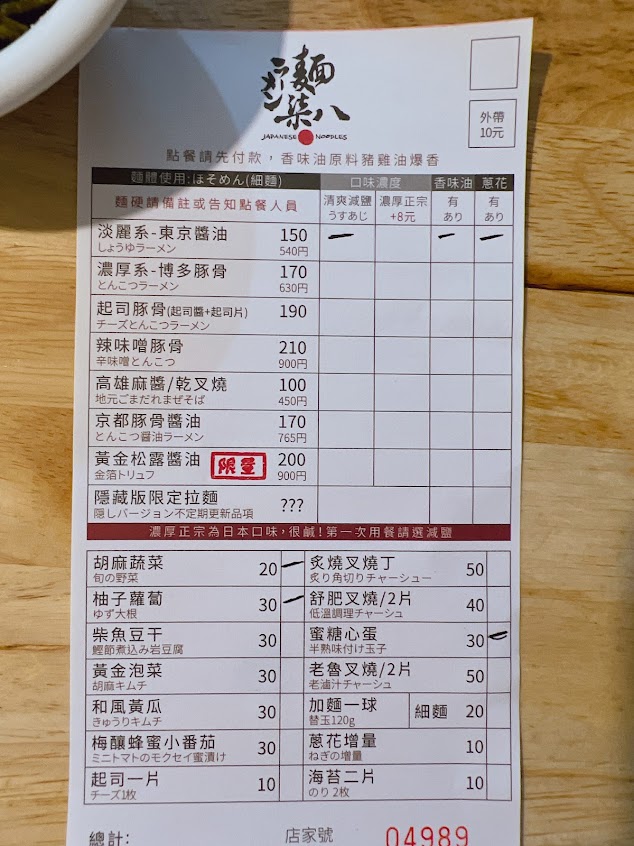 ラーメン
麵柒八
JAPANESE NOODLES
外帶
10元
點餐請先付款，香味油原料豬雞油爆香
麵體使用:ほそめん(細麵) 口味濃度 香味油 蔥花
麵硬請備註或告知點餐人員 清爽減鹽 濃厚正宗 有 有
うすあじ +8元 あり あり
淡麗系-東京醬油 150
しょうゆラーメン 540円
濃厚系-博多豚骨 170
とんこつラーメン 630円
起司豚骨(起司醬+起司片) 190
チーズとんこつラーメン
辣味噌豚骨 210
辛味噌とんこつ 900円
高雄麻醬/乾叉燒 100
地元ごまだれまぜそば 450円
京都豚骨醬油 170
とんこつ醤油ラーメン 765円
黃金松露醬油 限量 200
金箔トリュフ 900円
隱藏版限定拉麵 ???
隠しバージョン不定期更新品項
濃厚正宗為日本口味，很鹹!第一次用餐請選減鹽
胡麻蔬菜 20 炙燒叉燒丁 50
旬の野菜 炙り角切りチャーシュー
柚子蘿蔔 30 舒肥叉燒/2片 40
ゆず大根 低溫調理チャーシュー
柴魚豆干 30 蜜糖心蛋 30
鰹節煮込み岩豆腐 半熟味付け玉子
黃金泡菜 30 老魯叉燒/2片 50
胡麻キムチ 老滷汁チャーシュー
和風黃瓜 30 加麵一球 細麵 20
きゅうりキムチ 替玉120g
梅釀蜂蜜小番茄 30 蔥花增量 10
ミニトマトのモクセイ蜜漬け ねぎの増量
起司一片 10 海苔二片 10
チーズ1枚 のり 2枚
總計: 店家號 04989